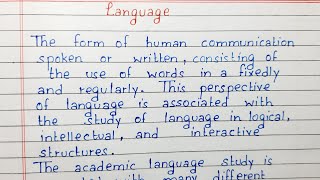 Language
The form of human communication
spoken or written, consisting of
the use of words in a fixedly
and regularly. This perspective
of language is associated with
the study of language in logical,
intellectual, and interactive
structures.
The academic language study is
with many different